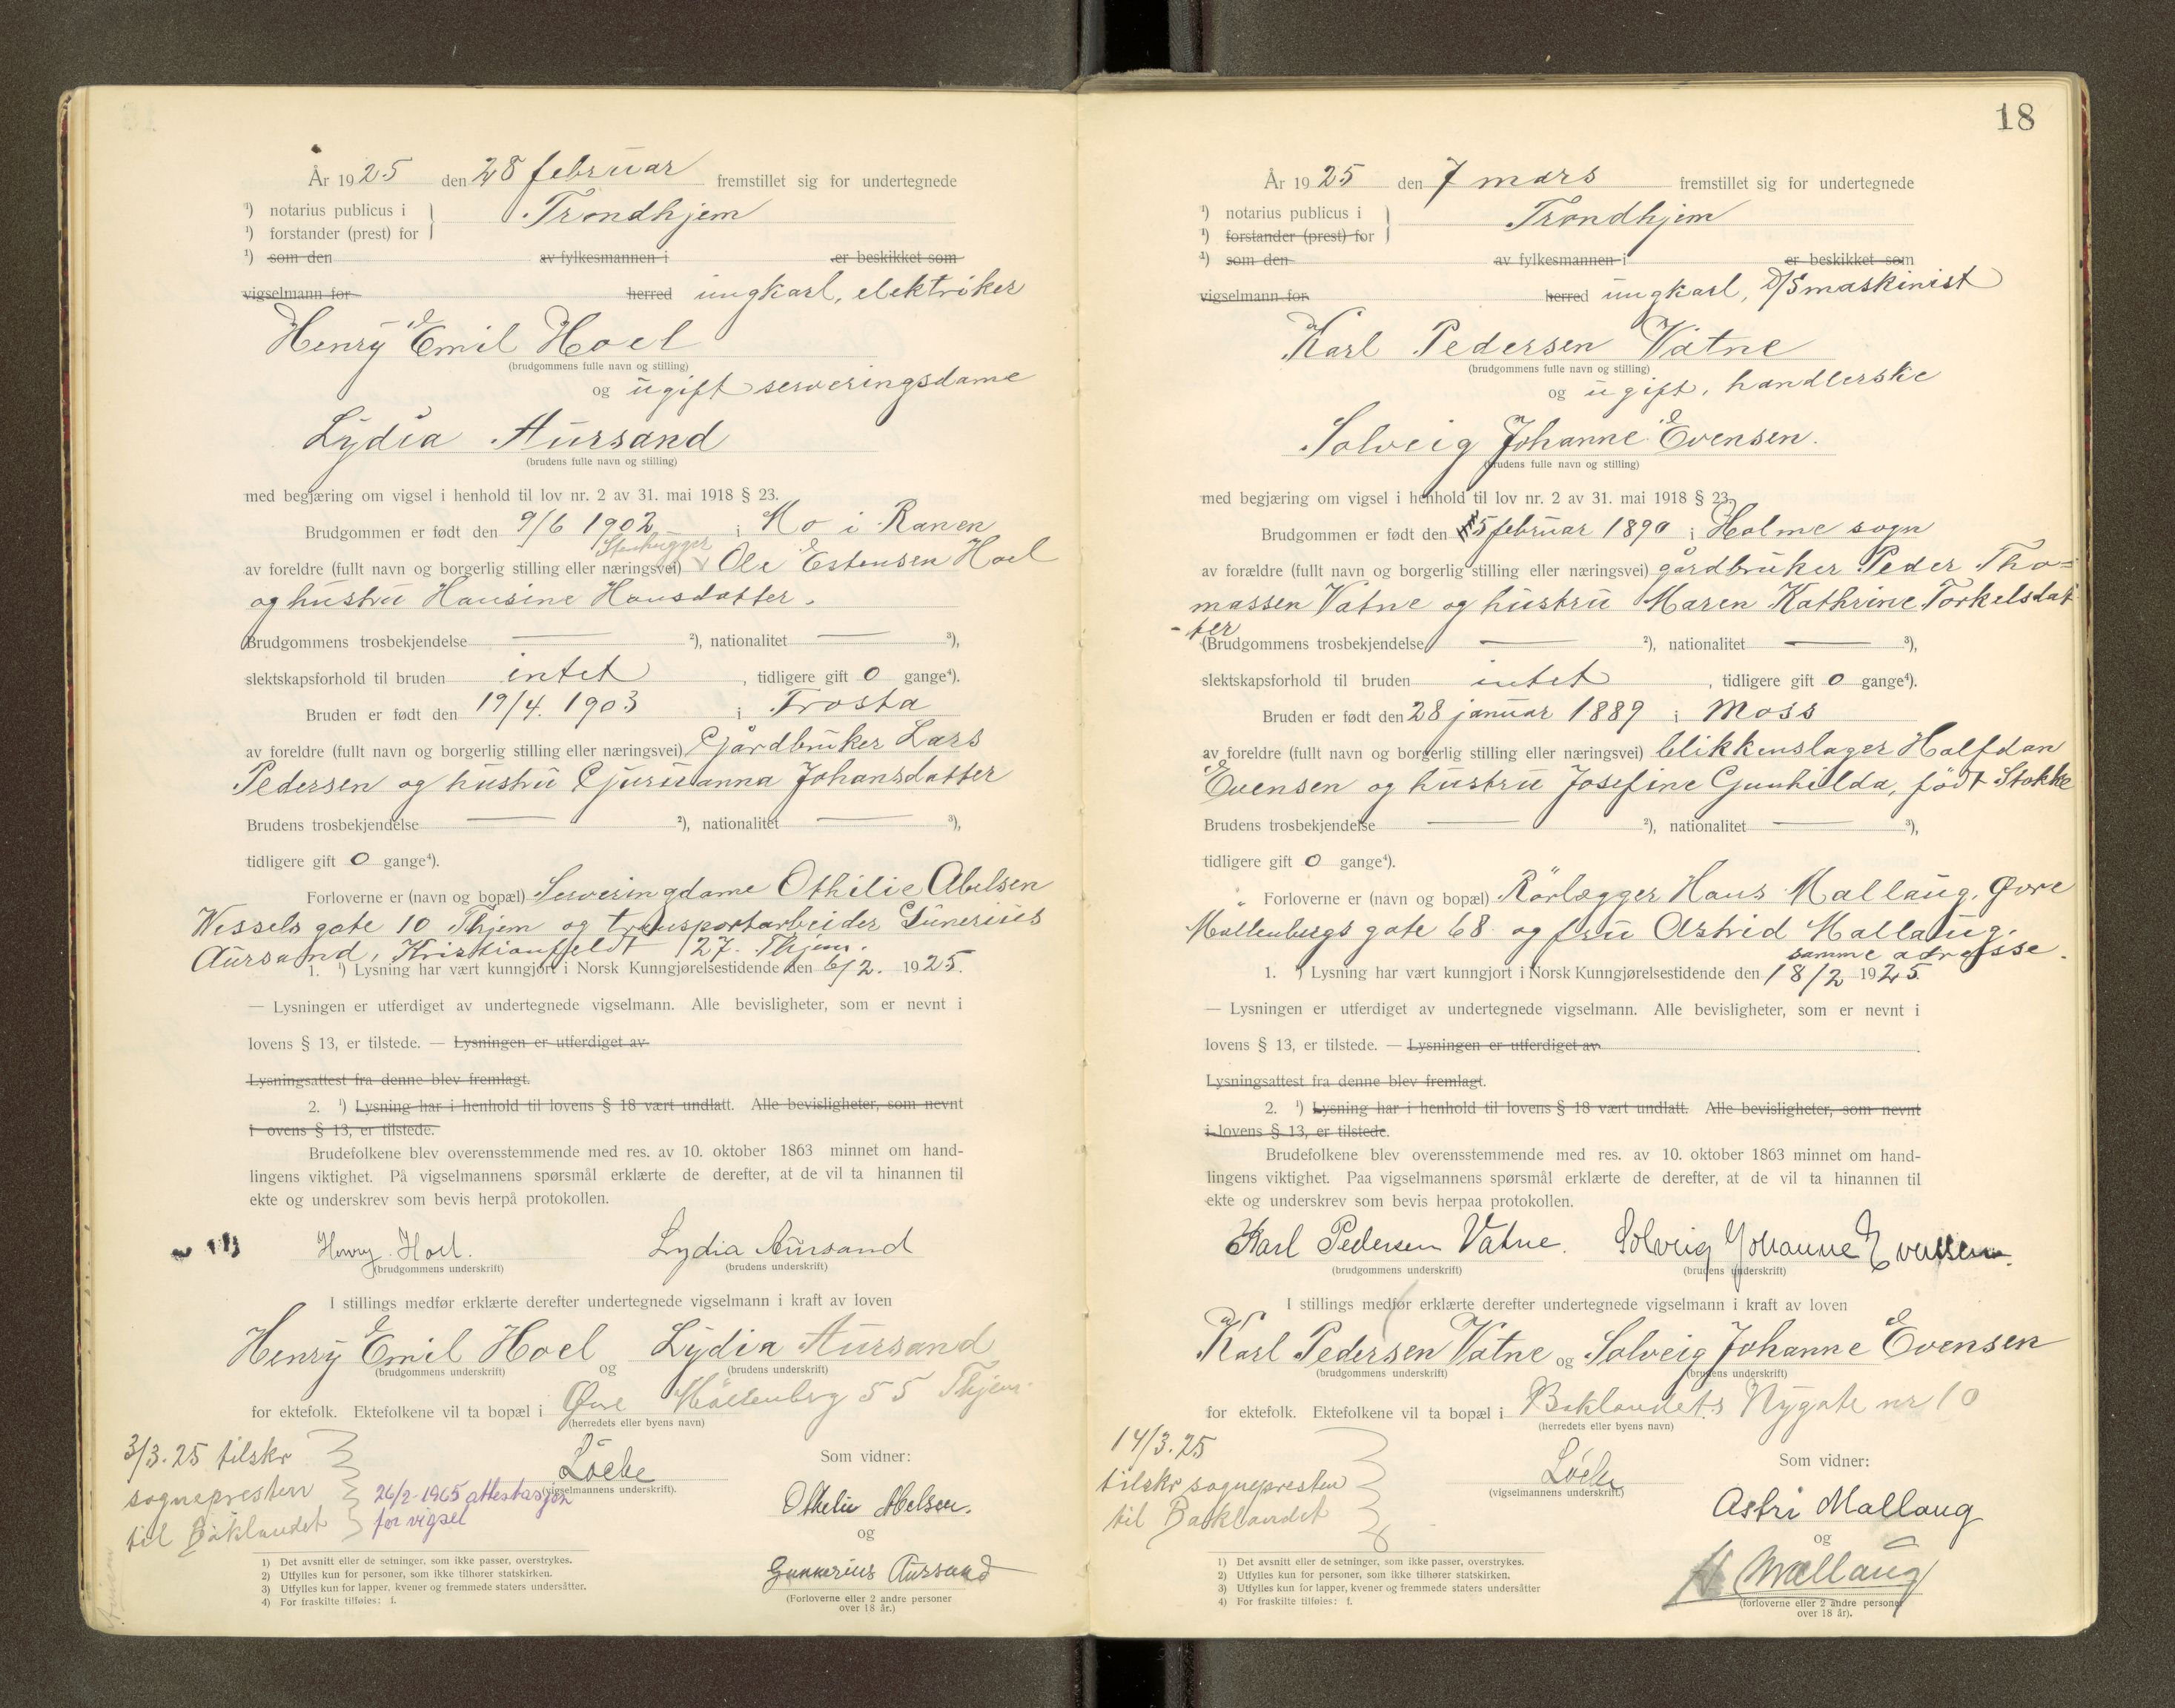 År 1925 den 28 februar fremstillet sig for undertegnede
¹) notarius publicus i
Trondhjem
¹) forstander (prest) for
¹) som den av fylkesmannen i er beskikket som
vigselmann for herred ungkarl, elektriker
Henry Emil Hoel
(brudgommens fulle navn og stilling)
og ugift serveringsdame
Lydia Aursand
(brudens fulle navn og stilling)
med begjæring om vigsel i henhold til lov nr. 2 av 31. mai 1918 § 23.
Brudgommen er født den 9/6 1902 i Mo i Ranen
Stenhugger
av foreldre (fullt navn og borgerlig stilling eller næringsvei) Ole Estensen Hoel
og hustru Hansine Hansdatter.
Brudgommens trosbekjendelse — ²), nationalitet — ³),
slektskapsforhold til bruden intet, tidligere gift 0 gange⁴).
Bruden er født den 19/4. 1903 i Frosta
av foreldre (fullt navn og borgerlig stilling eller næringsvei) Gårdbruker Lars
Pedersen og hustru Gjuruanna Johansdatter
Brudens trosbekjendelse — ²), nationalitet — ³),
tidligere gift 0 gange⁴).
Forloverne er (navn og bopæl) Serveringdame Othilie Abelsen
Wessels gate 10 Thjem og transportarbeider Gunerius
Aursand, Kristianfeldt 127. Thjem.
1. ¹) Lysning har vært kunngjort i Norsk Kunngjørelsestidende den 6/2. 1925.
— Lysningen er utferdiget av undertegnede vigselmann. Alle bevisligheter, som er nevnt i
lovens § 13, er tilstede. — Lysningen er utferdiget av
Lysningsattest fra denne blev fremlagt.
2. ¹) Lysning har i henhold til lovens § 18 vært undlatt. Alle bevisligheter, som nevnt
i ovens § 13, er tilstede.
Brudefolkene blev overensstemmende med res. av 10. oktober 1863 minnet om hand-
lingens viktighet. På vigselmannens spørsmål erklærte de derefter, at de vil ta hinannen til
ekte og underskrev som bevis herpå protokollen.
Henry Hoel. Lydia Aursand
(brudgommens underskrift) (brudens underskrift)
I stillings medfør erklærte derefter undertegnede vigselmann i kraft av loven
Henry Emil Hoel og Lydia Aursand
(brudgommens underskrift) (brudens underskrift)
for ektefolk. Ektefolkene vil ta bopæl i Øvre Møllenberg 55 Thjem.
(herredets eller byens navn)
3/3.25 tilskr
sognepresten
til Baklandet
26/2-1965 attestasjon
for vigsel
Löche
(vigselmannens underskrift).
Som vidner:
Othelie Abelsen.
og
Gunnerius Aursand
(Forloverne eller 2 andre personer
over 18 år.)
1) Det avsnitt eller de setninger, som ikke passer, overstrykes.
2) Utfylles kun for personer, som ikke tilhører statskirken.
3) Utfylles kun for lapper, kvener og fremmede staters undersåtter.
4) For fraskilte tilføies: f.
18
År 1925 den 7 mars fremstillet sig for undertegnede
¹) notarius publicus i
Trondhjem
¹) forstander (prest) for
¹) som den av fylkesmannen i er beskikket som
vigselmann for herred ungkarl, D/Smaskinist
Karl Pedersen Vatne
(brudgommens fulle navn og stilling)
og ugift, handlerske
Solveig Johanne Evensen.
(brudens fulle navn og stilling)
med begjæring om vigsel i henhold til lov nr. 2 av 31. mai 1918 § 23.
Brudgommen er født den 5 februar 1890 i Holme sogn
av forældre (fullt navn og borgerlig stilling eller næringsvei) gårdbruker Peder Tho=
massen Vatne og hustru Maren Kathrine Torkelsdat
-ter
(Brudgommens trosbekjendelse — ²), nationalitet — ³),
slektskapsforhold til bruden intet, tidligere gift 0 gange⁴).
Bruden er født den 28 januar 1889 i Moss
av foreldre (fullt navn og borgerlig stilling eller næringsvei) blikkenslager Halfdan
Evensen og hustru Josefine Gunhilda, født Stokke
Brudens trosbekjendelse — ²), nationalitet — ³),
tidligere gift 0 gange⁴).
Forloverne er (navn og bopæl) Rörlægger Hans Mallaug, Øvre
Møllenbergs gate 68 og fru Astrid Mallaug,
samme adresse.
1. ¹) Lysning har vært kunngjort i Norsk Kunngjørelsestidende den 18/2 1925
— Lysningen er utferdiget av undertegnede vigselmann. Alle bevisligheter, som er nevnt i
lovens § 13, er tilstede. — Lysningen er utferdiget av
Lysningsattest fra denne blev fremlagt.
2. ¹) Lysning har i henhold til lovens § 18 vært undlatt. Alle bevisligheter, som nevnt
i lovens § 13, er tilstede.
Brudefolkene blev overensstemmende med res. av 10. oktober 1863 minnet om hand-
lingens viktighet. Paa vigselmannens spørsmål erklærte de derefter, at de vil ta hinannen til
ekte og underskrev som bevis herpaa protokollen.
Karl Pedersen Vatne. Solveig Johanne Evensen.
(brudgommens underskrift) (brudens underskrift)
I stillings medfør erklærte derefter undertegnede vigselmann i kraft av loven
Karl Pedersen Vatne og Solveig Johanne Evensen
(brudgommens underskrift) (brudens underskrift)
for ektefolk. Ektefolkene vil ta bopæl i Baklandets Nygate nr 10
(herredets eller byens navn)
14/3.25
tilskr sognepresten
til Baklandet
Löche
(vigselmannens underskrift.)
Som vidner:
Astri Mallaug
og
H Mallaug
(forloverne eller 2 andre personer
over 18 år).
1) Det avsnitt eller de setninger, som ikke passer, overstrykes.
2) Utfylles kun for personer, som ikke tilhører statskirken.
3) Utfylles kun for lapper, kvener og fremmede staters undersåtter
4) For fraskilte tilføies: f.